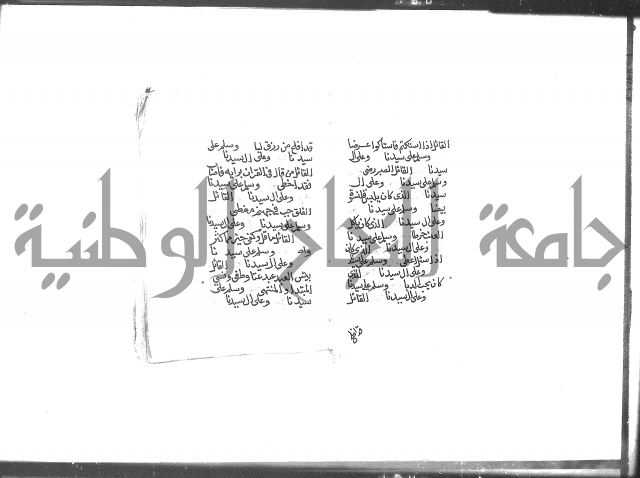 القائل اذا استكتم فاستاكوا عرضا
وسلم على سيدنا وعلى ال
سيدنا القائل الصبر رضى
وسلم على سيدنا وعلى ال
سيدنا الذى كان يلبس قلنسوة
بيضا وسلم على سيدنا
وعلى ال سيدنا الذى كان ياكل
وسلم على سيدنا
وعلى ال سيدنا الذى كان
وسلم على سيدنا
وعلى ال سيدنا الذى
كان يحب الدبا وسلم على سيدنا
وعلى ال سيدنا القائل
قد افلح من رزق لبا وسلم على
سيدنا وعلى ال سيدنا
القائل من قال فى القران برايه فاصاب
فقد اخطى وسلم على سيدنا
وعلى ال سيدنا القائل
الفلق جب فى جهنم مغطى
وسلم على سيدنا وعلى ال سيدنا
القائل ما قل وكفى خير مما كثر
والهى وسلم على سيدنا
وعلى ال سيدنا القائل
بيس العبد عبد عتا وطغى ونسى
المبتدا والمنتهى وسلم على
سيدنا وعلى ال سيدنا
جامعة النجاح الوطنية